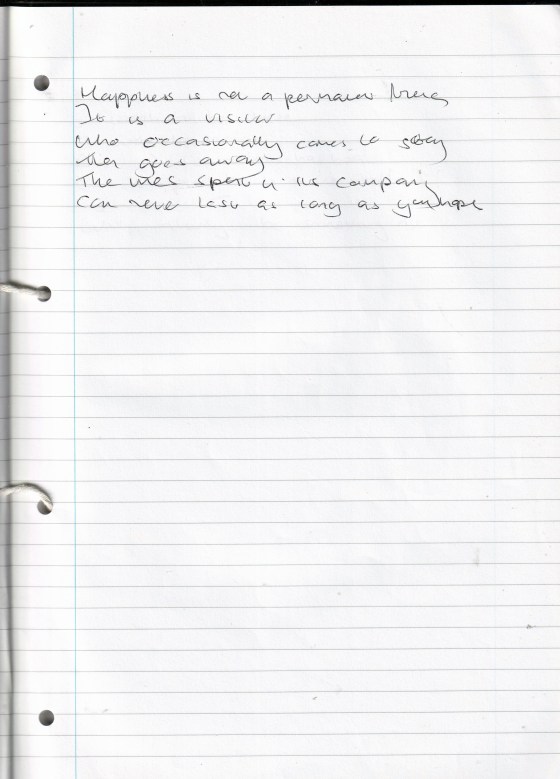 Happiness is not a permanent thing
It is a visitor
who occasionally comes to stay
then goes away
The times spent in its company
Can never last as long as you hope